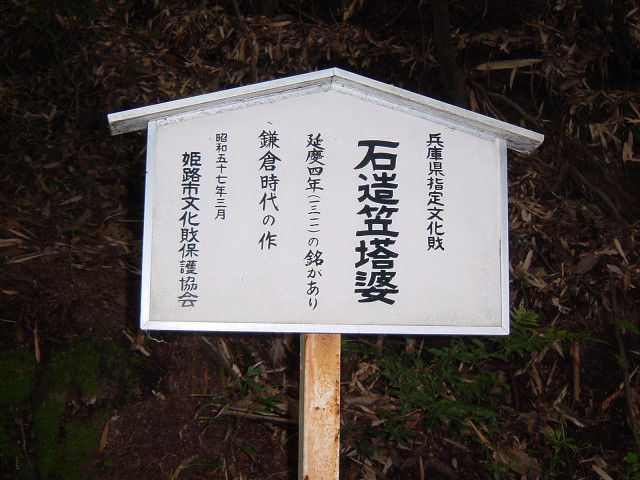 兵庫県指定文化財
石造笠塔婆
延慶四年(一三一一)の銘があり
鎌倉時代の作
昭和五十七年三月
姫路市文化財保護協会